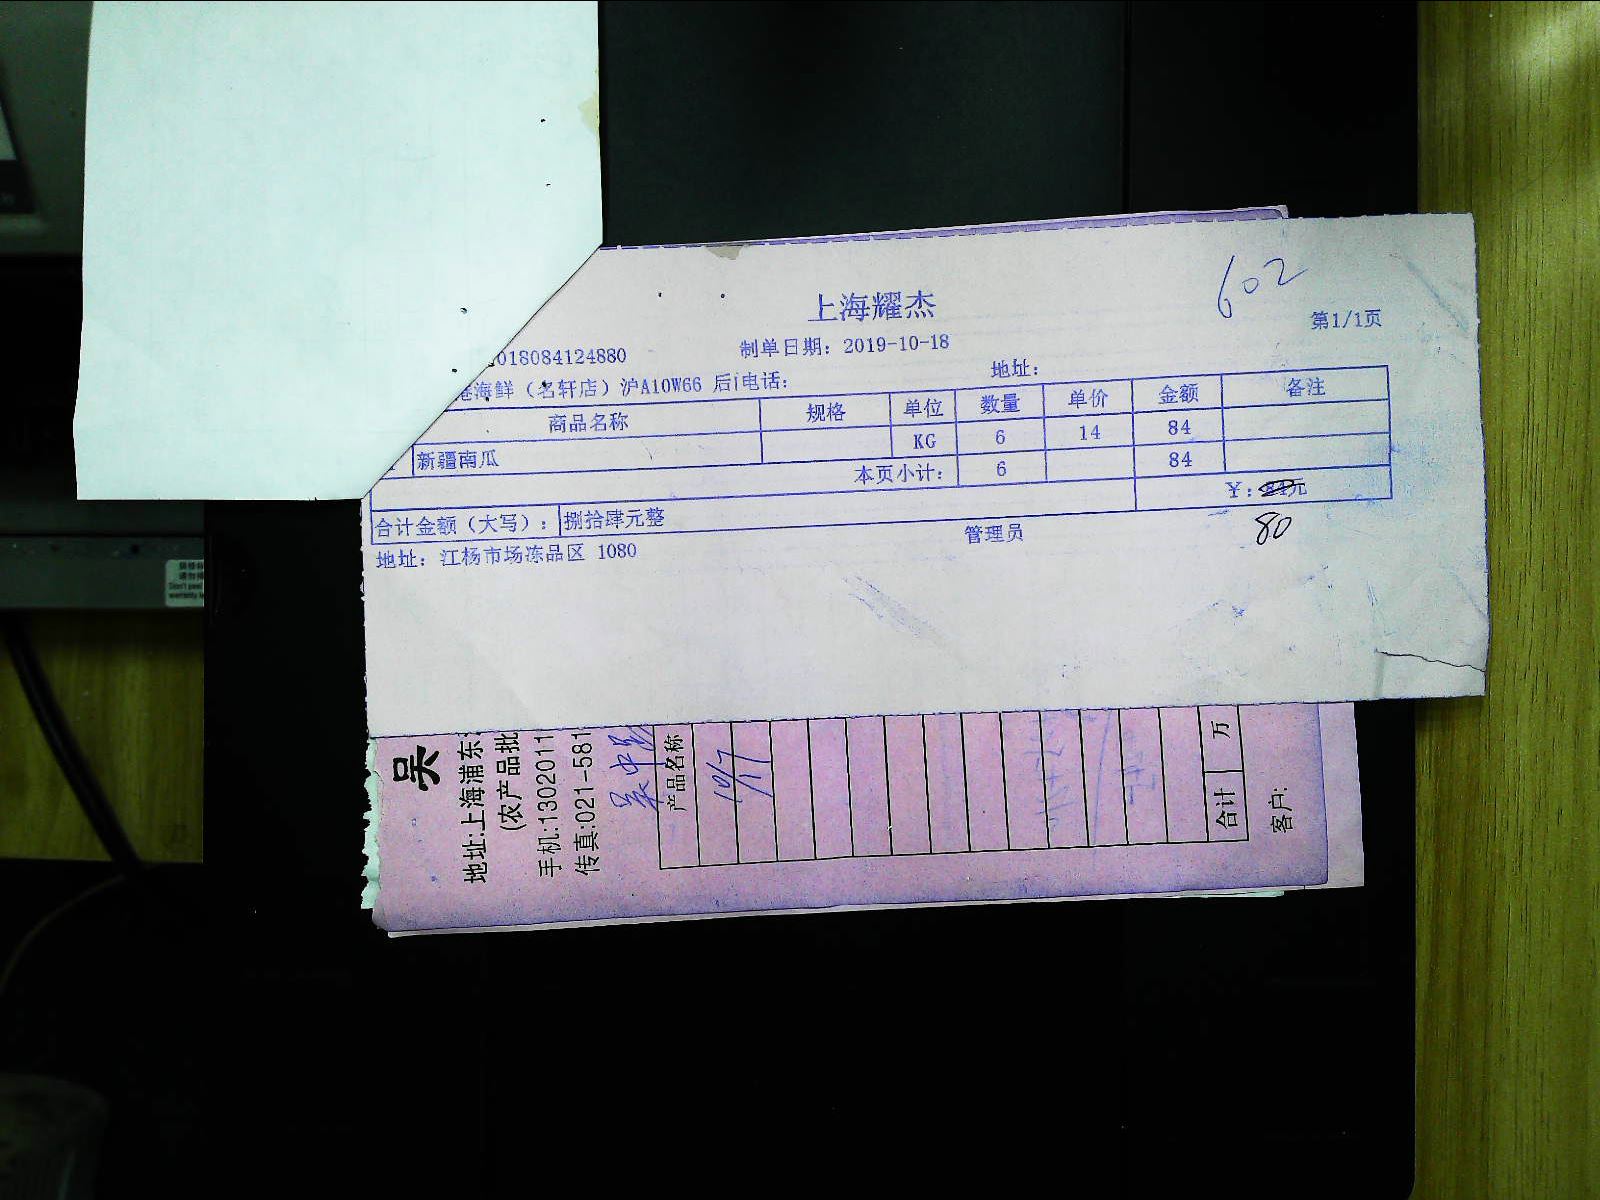 602
上海耀杰
第1/1页
018084124880 制单日期: 2019-10-18
港海鲜（名轩店）沪A10W66 后i电话: 地址:
商品名称 规格 单位 数量 单价 金额 备注
新疆南瓜 KG 6 14 84
本页小计: 6 84
合计金额（大写）: 捌拾肆元整 ¥: 84元
80
地址: 江杨市场冻品区 1080 管理员
吴
地址:上海浦东
(农产品批
手机:1302011
传真:021-581
产品名称
10/17
合计 万
客户:
Don't peel
warranty